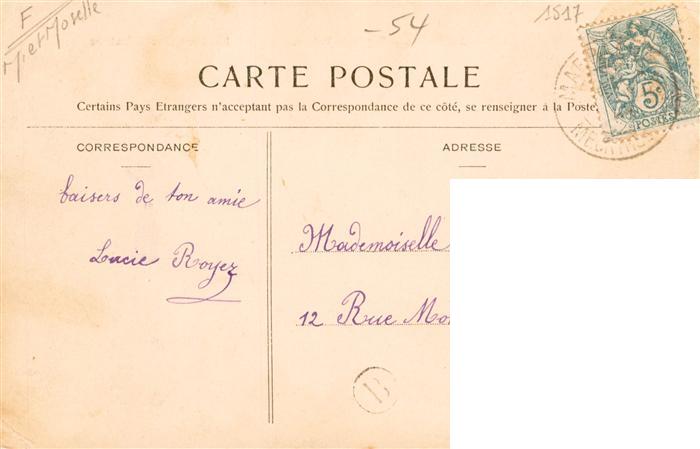 F
M et Moselle
-54
1517
CARTE POSTALE
Certains Pays Etrangers n'acceptant pas la Correspondance de ce côté, se renseigner à la Poste.
5c
POSTES
CORRESPONDANCE
ADRESSE
baisers de ton amie
Lucie Royez
Mademoiselle
12 Rue Mo
B